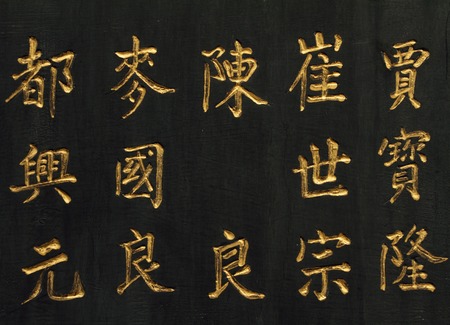 賈寶隆
崔世宗
陳良
麥國良
都興元